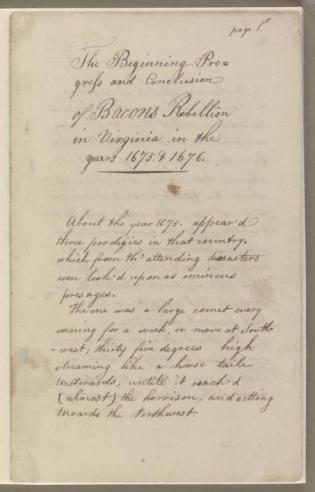 page 1st
The Beginning Pro=
gress and Conclusion
of Bacons Rebellion
in Virginia in the
years 1675. & 1676.
About the year 1675. appear'd
three prodigies in that country,
which from th' attending disasters
were look'd upon as ominous
presages.
The one was a large comet every
evening for a week, or more at South-
-west, thirty five degrees high
streaming like a horse taile
westwards, untill it reach'd
(almost) the horrison, and setting
towards the Northwest.